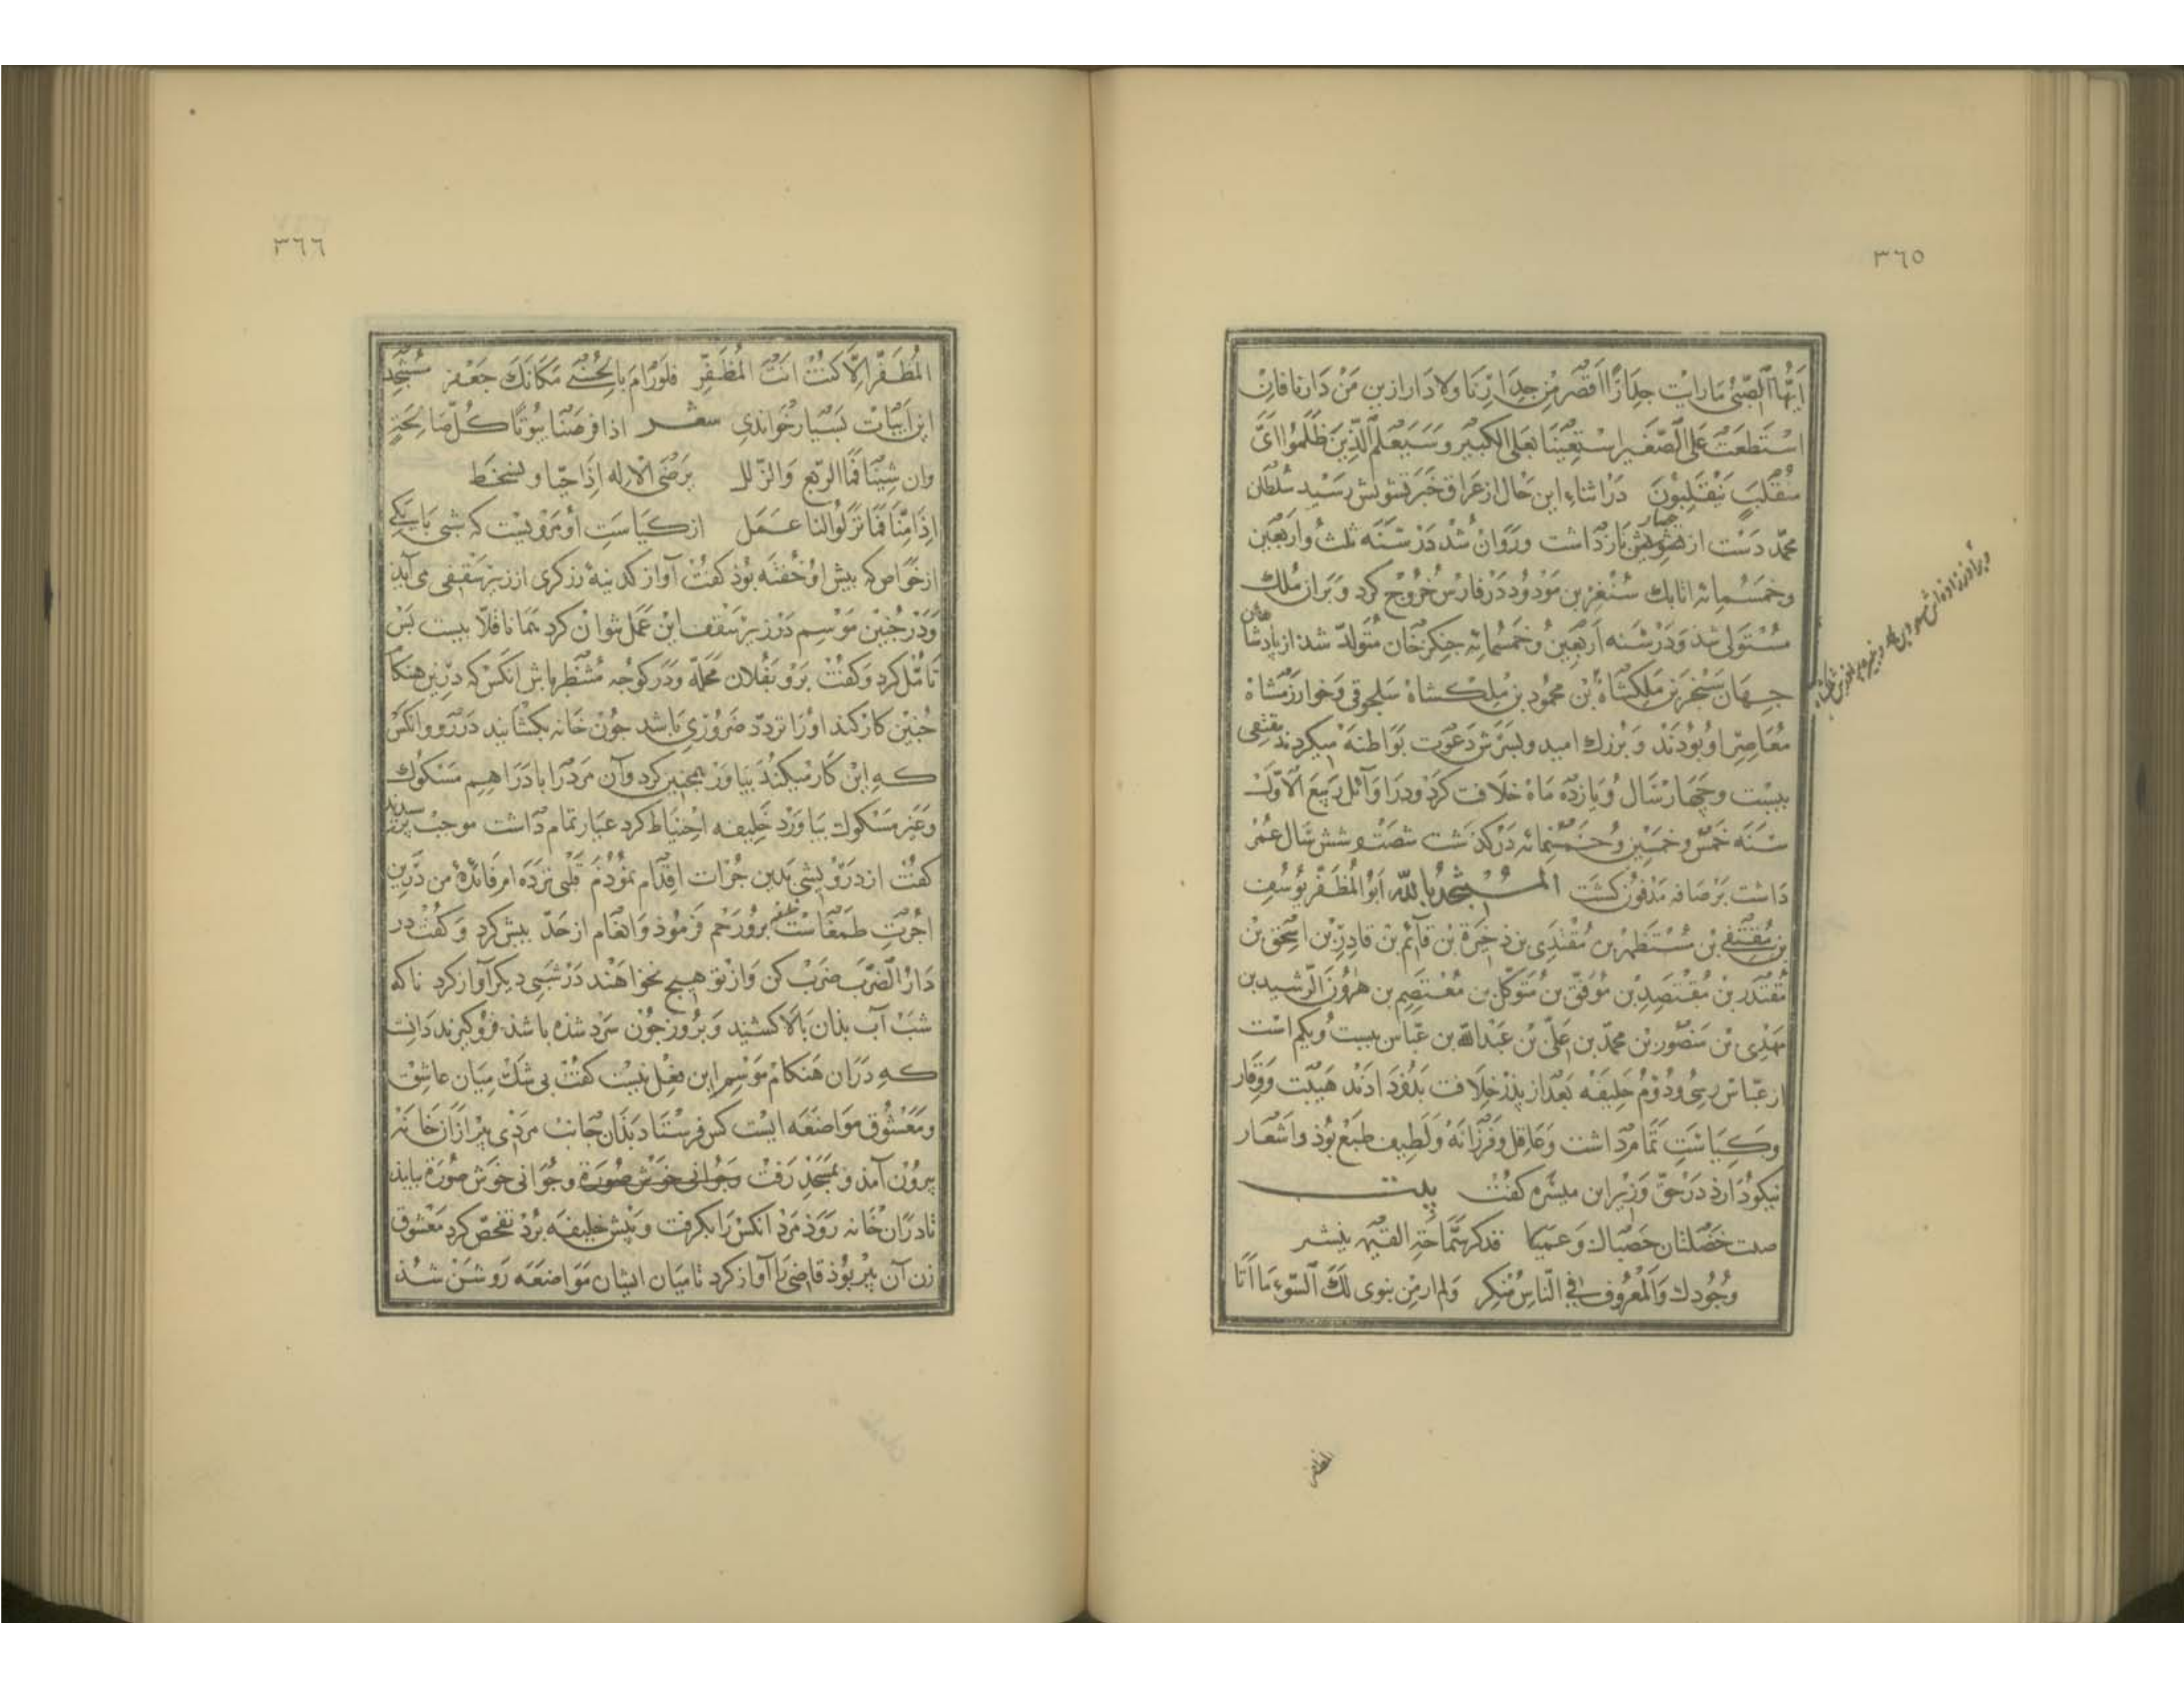 ٣٦٥
اَیُّهَا الصَّبِیُّ مَا رَایْت جِدَارًا اَقْصَر مِنْ جِدَارِنَا وَلَا دَارا ازین مَنْ دَارنا فان
اسْتَطَعَتْ عَلَی الصَّغیر اسْتعِیْنَا بعلی الکبیر وَسَیَعْلَمُ الَّذِیْنَ ظَلَمُوا اَیَّ
مُنْقَلَبٍ یَنْقَلِبُوْنَ دَرْ اثناءِ این حَال از عِرَاق خَبَر تشویش رَسِیْد سُلْطَان
محمّد دَسْت از حِصار بَاز دَاشت وَرَوَان شُدْ دَرْ سَنَه ثلث وَاَرْبَعین
وخَمْسُمِائه اتابك سُنْقُر بن مَوْدُوْد دَرْ فارسْ خُرُوْج کَرد وَبَرَان مُلك
مُسْتَولِی شد وَدَرْ سَنه اَرْبَعِیْن وُ خَمْسُمائه جنکز خان مُتَولّد شد از پادشاهان
جهان سَنْجَر بن مَلِکشَاهْ بْن محمُود بن مَلِکشاهْ سَلجوقی وَخوارَزْمشَاهْ
مُعَاصِرِ اوْ بُوْدَنْد وَ بُزْرك امید وبسَرش دَعْوَت بَوَاطنَه میکردند مقتفی
بیست وچَهارْ سَال وُ یَازدَه مَاهْ خلَافت کَرْدْ ودَر اَوَائل رَبیعَ الْاَوّلْ
سَنَه خَمْس وخَمْسِیْن وُخَمْسُمِائه دَرْکذشت شصَتْ وشش سَال عُمْر
دَاشت بَرصَافه مَدْفُوْن کشت المُسْتَنْجِدُ بِاللّه اَبُو الْمُظَفَّر یُوْسُف
بن مُقْتَفی بْن مُسْتَظهر بن مُقْتَدِی بن ذخیرَة بْن قآئم بْن قادِر بْن اسْحَق بْن
مُقْتَدر بْن مُعْتَضِد بْن مُوَفّق بْن مُتَوَکّل بْن مُعْتَصِم بن هرُوْن الرَّشید بن
مَهْدِی بْن مَنصُور بْن محمّد بن عَلیّ بْن عَبْد الله بن عَبّاس بیست وُیکم است
از عبّاس رسی ودُوُّم خَلِیْفَه بَعْدَ از پذر خِلَافت بَدُوْ دَادَنْد هَیْبَت وَوَقار
وکِیَاسَتِ تَمَامْ داشت وَعَاقِل وَفَرْزَانَه وَلَطِیف طَبْع بُوْذ وَاشعَار
نیکُوْ دَارد دَرْ حَقّ وَزِیْر ابن هبیره کفت بیت
صفت خَصْلتَان خصتاك وَعَمتا قذکرهما حَتی القیمه ینشر
وُجُوْدك وَالْمَعْرُوْف فِی النَّاسِ مُنکر ولم ار مَنْ ینوی لَكَ السُّوْءَ یَا اَبَا
المظفر
٣٦٦
المُظَفَّر اِلَّا کُنْتَ اَنْتَ الْمُظَفَّر فلَوْ رَامَ یَا یَحْیی مَکَانَك جَعْفَر مُسْتَنْجِد
این اَبْیَات بَسْیَار خَوَاندی شعر اذا مرضنا نوینا کُلَّ صَالِحَةٍ
وان شفینا فمنا الزیغ وَالزّلل نرضی الالٰه اِذَا خفنا ونسخط
اِذَا امِنَّا فَمَا یَزکُو لنا عَمَل از کیَاسَتِ اُو مَرْوِیست که شبی بَا یکی
از خَوَاص که بیش اوْ خُفْتَه بُوْذ کفت آواز کدینهٔ زرکری از زیر سَقفی می آید
وَدَرْ چُنین مَوْسِم دَرْ زیر سَقف ابْن عَمَل نتوان کرد همانا قلّا بیست بَسْ
تَامُّل کرد وَکفْت بَرْو بفُلان مَحَلّه وَدَر کوجه مُنْتَظر باش انکس که دَرین هنکام
چُنین کار کند اوْ را تردّد ضَرُوْرِی باشد چُون خَانه بکشایند دَرْ رو وانکس
که این کار میکند بیاور همچنین کرد وآن مَرد را با دَرَاهیم مَسْکوك
وغیر مَسْکوك بیاورد خَلِیفه احْتیَاط کرد عیار تمام داشت موجب برسید
کفت از درْوِیشی بدین جُرات اقدام نموذم قَلْبی نزده ام فائدهٔ من درین
اجْرَتِ طَمْغَاست خلیفه برو رَحم فرموذ وَانعَام از حَدّ بیش کرد وَکفت در
دَارُ الضَّرب ضَرْبْ کن وَاز تو هیچ نخواهند دَرْ شبی دیکر آواز کرد تا که
شب آب بذان بالا کشند وَبروز چُون سَرْد شذه باشد فرو کیرند دانست
که دَرَان هَنکام مَوسِم این فِعْل نیست کفت بی شك میان عاشق
ومَعْشوق مَوَاضعَه ایست کس فرستاد بذان جانب مَردی بیر از ان خانه
بیرون آمذ وبمسْجِد رَفت وَجَوَانی خوش صُورَة وجُوَانی خوش صُورَة بیاید
تا در ان خانه رَوَذ مَرد انکس را بکرفت وبیش خلیفه برد تفحّص کرد مَعْشوق
زن آن بیر بُوذ قاضی را آواز کرد تا میان ایشان مَوَاضعَه رَوشن شذ